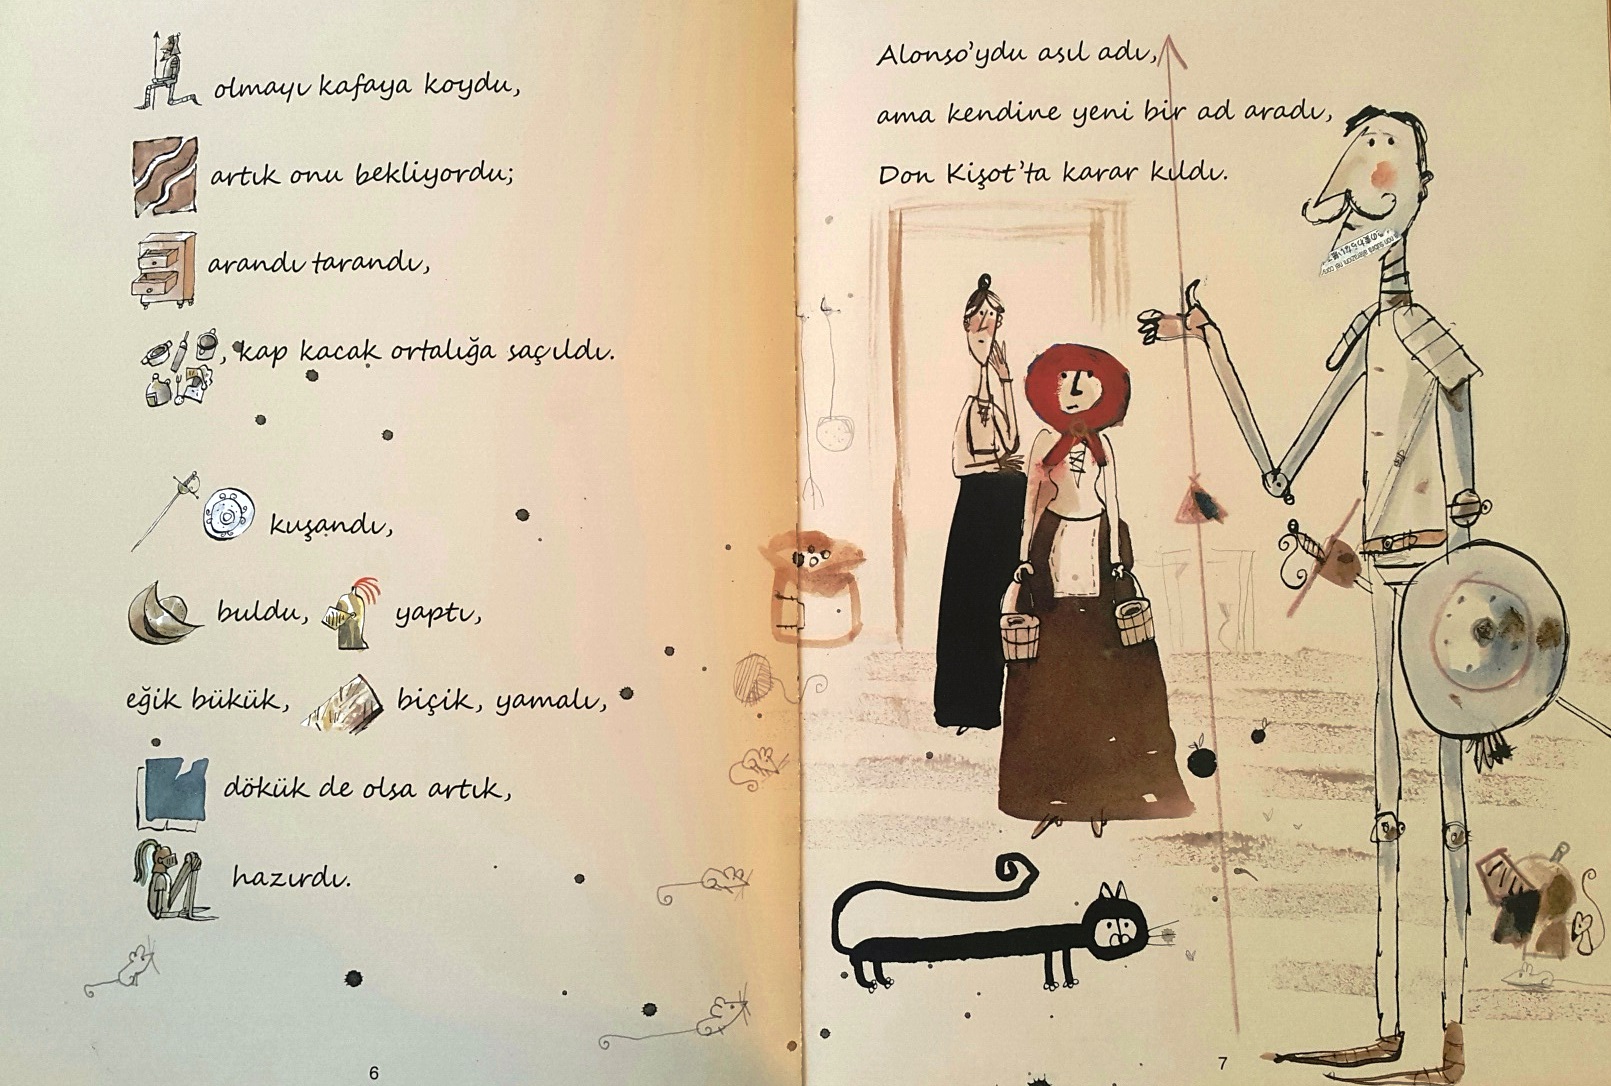 olmayı kafaya koydu,
artık onu bekliyordu;
arandı tarandı,
, kap kacak ortalığa saçıldı.
kuşandı,
buldu, yaptı,
eğik bükük, biçik, yamalı,
dökük de olsa artık,
hazırdı.
6
Alonso'ydu asıl adı,
ama kendine yeni bir ad aradı,
Don Kişot'ta karar kıldı.
7